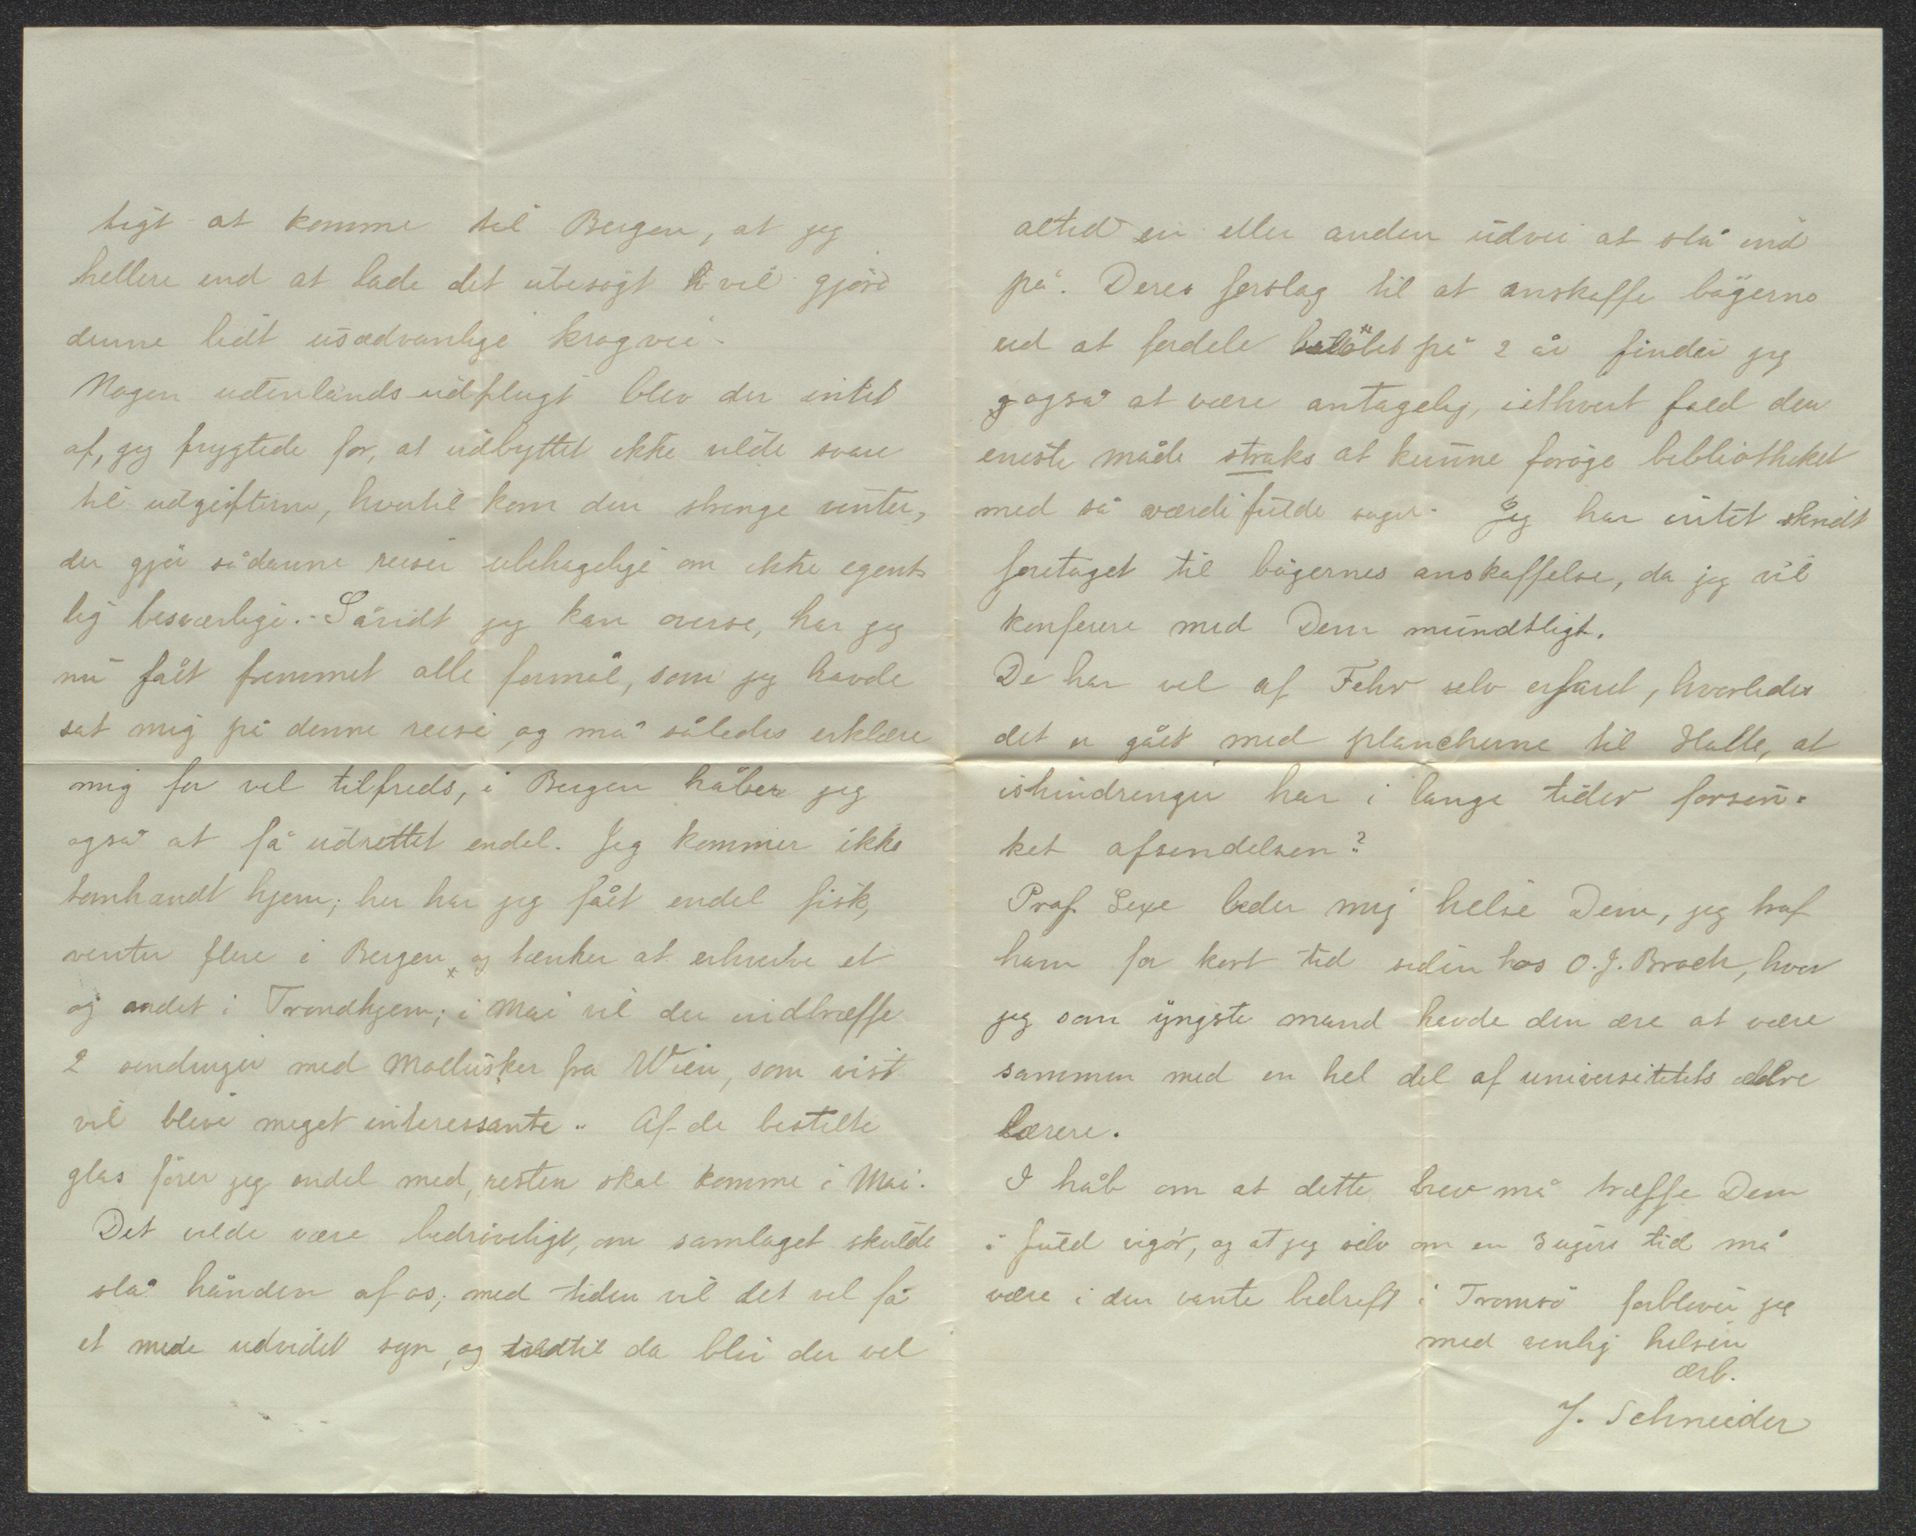 tigt at komme til Bergen, at jeg
hellere end at lade det ubesøgt vil gjøre
denne lidt usædvanlige krogvei.
Nogen udenlands-udflugt blev der intet
af, jeg frygtede for, at udbyttet ikke vilde svare
til udgifterne, hvortil kom den strenge vinter,
der gjør sådanne reiser ubehagelige om ikke egent-
lig besværlige. - Såvidt jeg kan overse, har jeg
nu fått fremmet alle formål, som jeg havde
sat mig på denne reise og må således erklære
mig for vel tilfreds, i Bergen håber jeg
også at få udrettet endel. Jeg kommer ikke
tomhændt hjem; her har jeg fått endel fisk,
venter flere i Bergen og tænker at erhverve et
og andet i Trondhjem; i Mai vil der indtræffe
2 sendinger med Mollusker fra Wien, som vist
vil blive meget interessante. Af de bestilte
glas fører jeg endel med, resten skal komme i Mai.
Det vilde være bedrøveligt, om samlaget skulde
slå hånden af os; med tiden vil det vel få
et mere udvidet syn, og indtil da blir der vel
altid en eller anden udvei at slå ind
på. Deres forslag til at anskaffe bøgerne
ved at fordele beløbet på 2 år finder jeg
også at være antagelig, iethvert fald den
eneste måde straks at kunne forøge bibliotheket
med så værdifulde sager. Jeg har intet skridt
foretaget til bøgernes anskaffelse, da jeg vil
konferere med Dem mundtligt.
De har vel af Fehr selv erfaret, hvorledes
det er gået med plancherne til Halle, at
ishindringer har i lange tider forsin-
ket afsendelsen?
Prof. Sexe beder mig helse Dem, jeg traf
ham for kort tid siden hos O. J. Broch, hvor
jeg som yngste mand havde den ære at være
sammen med en hel del af universitetets ældre
lærere.
I håb om at dette brev må træffe Dem
i fuld vigør, og at jeg selv om en 3 ugers tid må
være i den vante bedrift i Tromsö forbliver jeg
med venlig hilsen
ærb.
J. Schneider